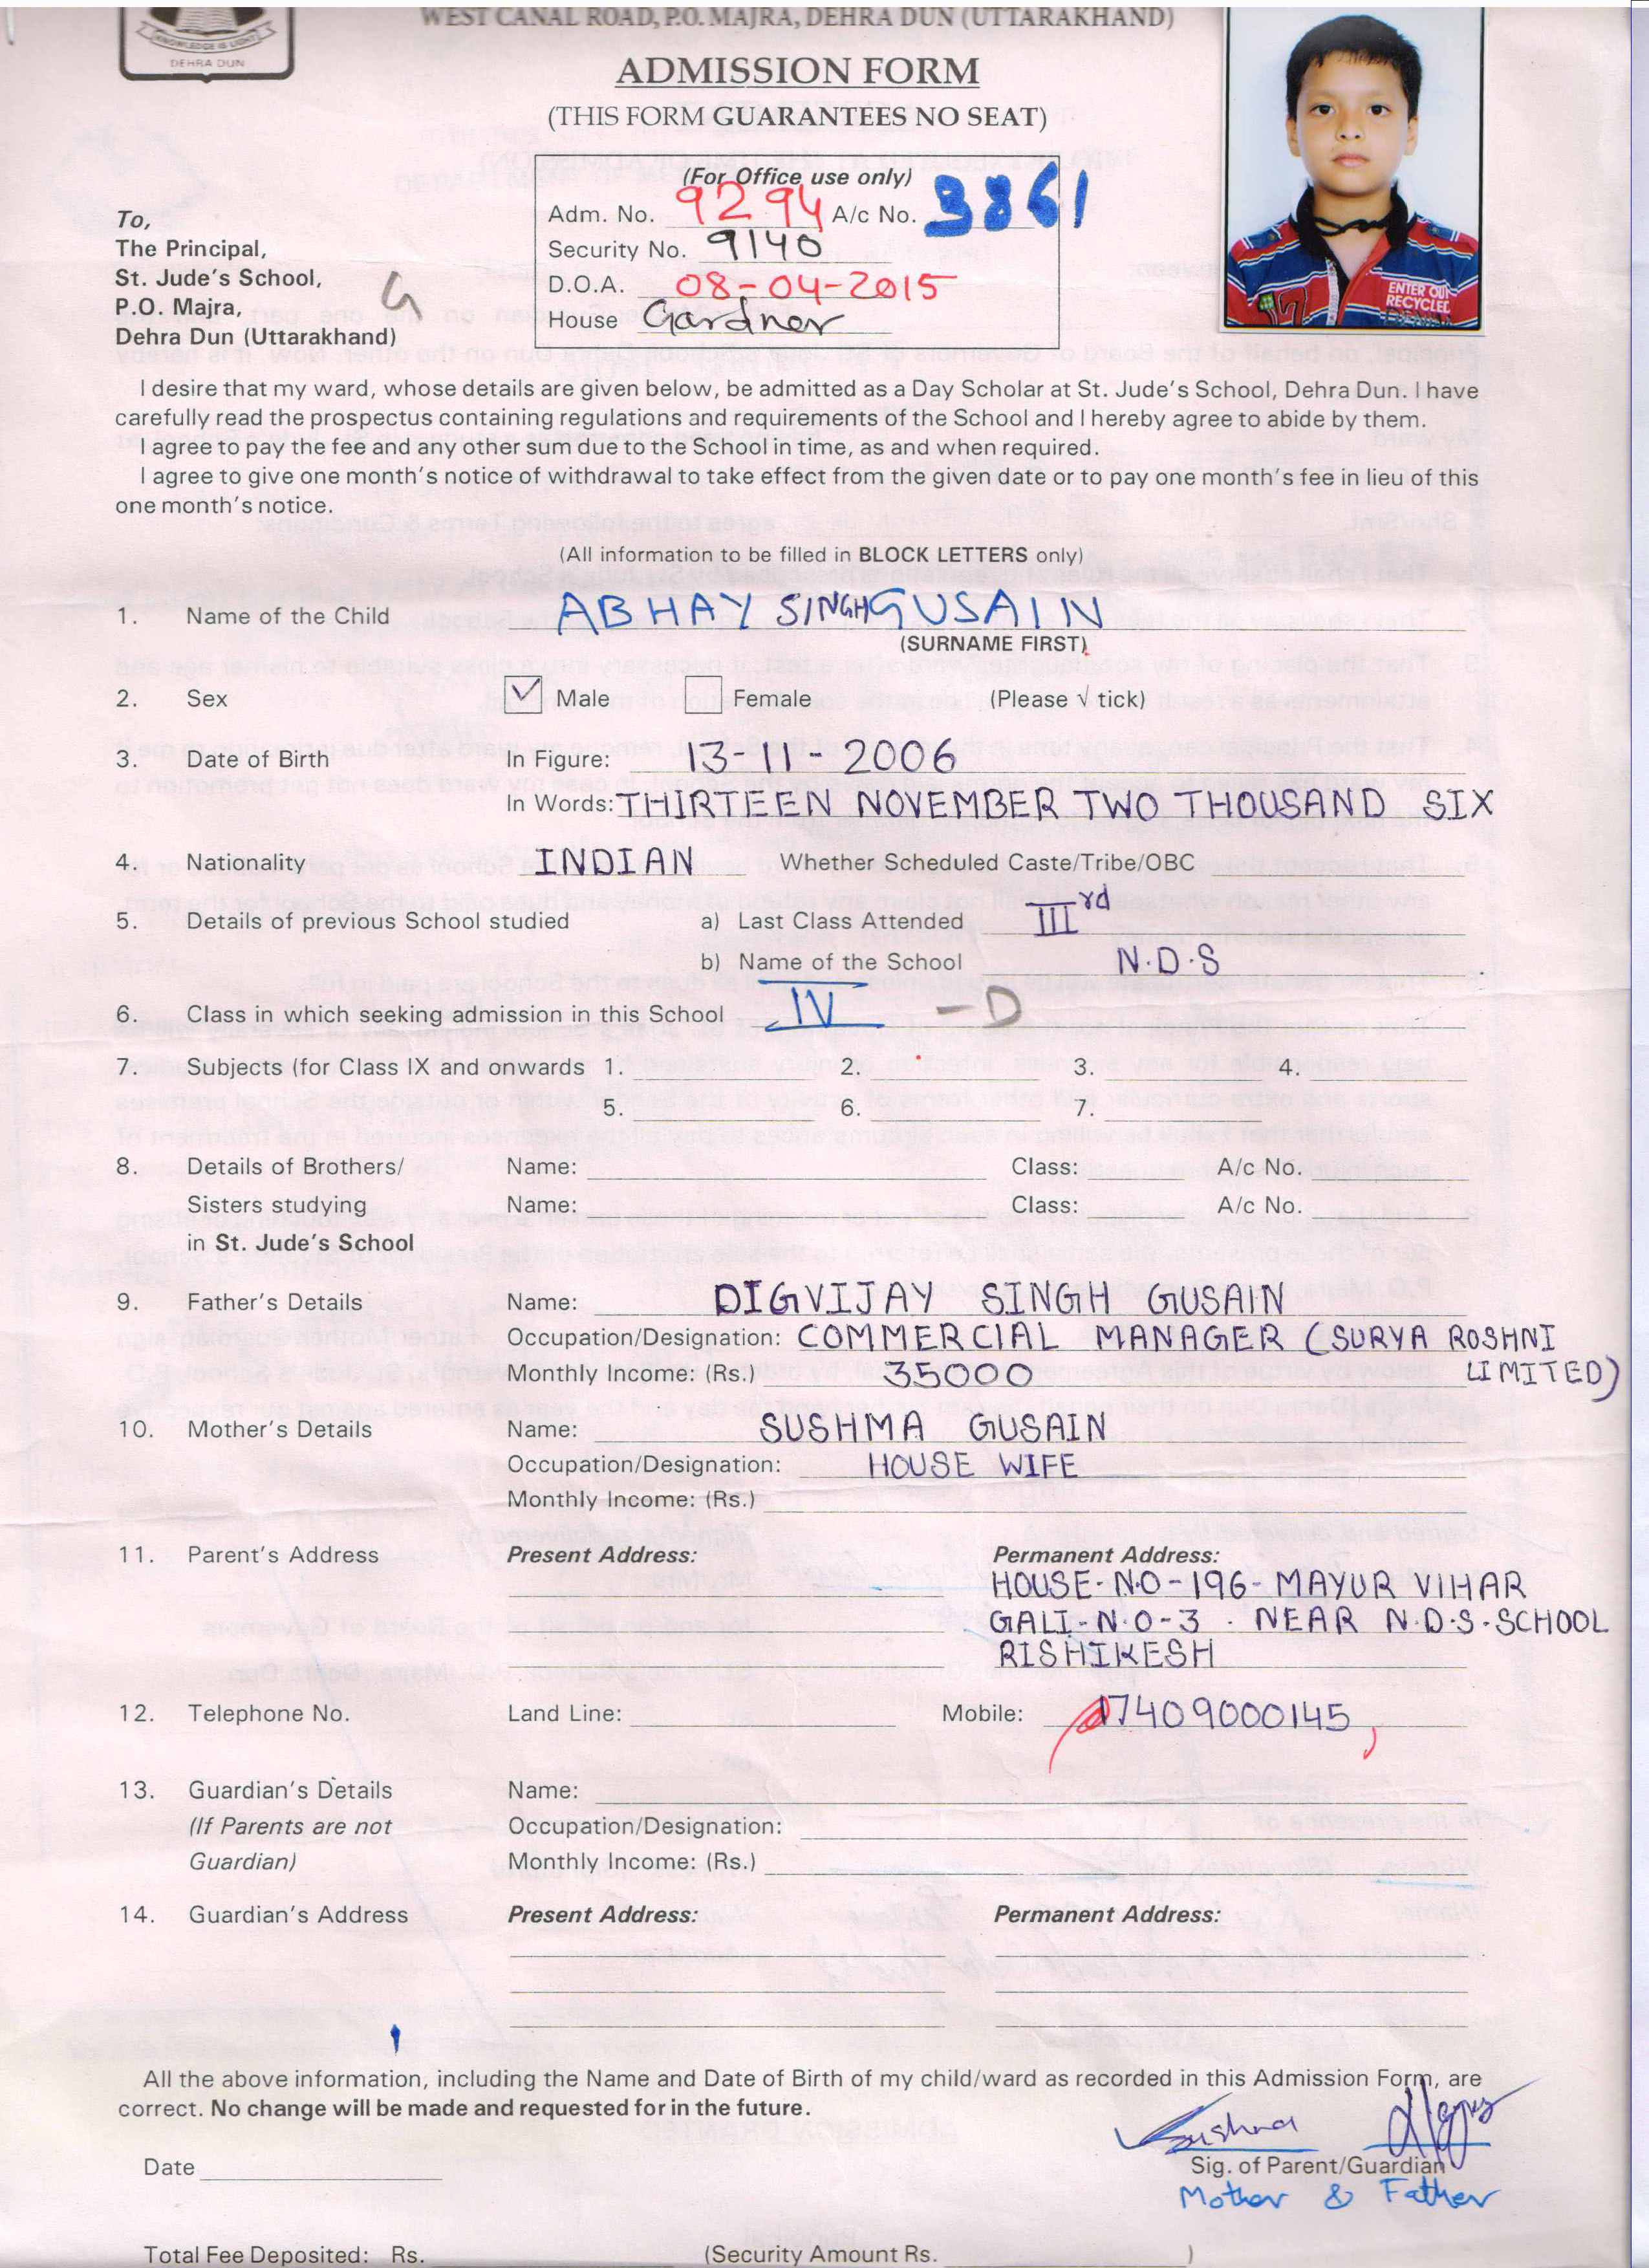 KNOWLEDGE IS LIGHT
DEHRA DUN
WEST CANAL ROAD, P.O. MAJRA, DEHRA DUN (UTTARAKHAND)
ADMISSION FORM
(THIS FORM GUARANTEES NO SEAT)
(For Office use only)
Adm. No. 9294 A/c No. 3861
Security No. 9140
D.O.A. 08-04-2015
House Gardner
To,
The Principal,
St. Jude's School,
P.O. Majra,
Dehra Dun (Uttarakhand)
G
ENTER OUT
RECYCLED
I desire that my ward, whose details are given below, be admitted as a Day Scholar at St. Jude's School, Dehra Dun. I have
carefully read the prospectus containing regulations and requirements of the School and I hereby agree to abide by them.
I agree to pay the fee and any other sum due to the School in time, as and when required.
I agree to give one month's notice of withdrawal to take effect from the given date or to pay one month's fee in lieu of this
one month's notice.
(All information to be filled in BLOCK LETTERS only)
1. Name of the Child ABHAY SINGH GUSAIN
(SURNAME FIRST)
2. Sex Male Female (Please √ tick)
3. Date of Birth In Figure: 13-11-2006
In Words: THIRTEEN NOVEMBER TWO THOUSAND SIX
4. Nationality INDIAN Whether Scheduled Caste/Tribe/OBC
5. Details of previous School studied a) Last Class Attended IIIrd
b) Name of the School N.D.S
6. Class in which seeking admission in this School IV - D
7. Subjects (for Class IX and onwards 1. 2. 3. 4.
5. 6. 7.
8. Details of Brothers/ Name: Class: A/c No.
Sisters studying Name: Class: A/c No.
in St. Jude's School
9. Father's Details Name: DIGVIJAY SINGH GUSAIN
Occupation/Designation: COMMERCIAL MANAGER (SURYA ROSHNI
Monthly Income: (Rs.) 35000 LIMITED)
10. Mother's Details Name: SUSHMA GUSAIN
Occupation/Designation: HOUSE WIFE
Monthly Income: (Rs.)
11. Parent's Address Present Address: Permanent Address:
HOUSE-N.O-196-MAYUR VIHAR
GALI-N.O-3 . NEAR N.D.S-SCHOOL
RISHIKESH
12. Telephone No. Land Line: Mobile: 7409000145
13. Guardian's Details Name:
(If Parents are not Occupation/Designation:
Guardian) Monthly Income: (Rs.)
14. Guardian's Address Present Address: Permanent Address:
All the above information, including the Name and Date of Birth of my child/ward as recorded in this Admission Form, are
correct. No change will be made and requested for in the future.
Sushma
Date Sig. of Parent/Guardian
Mother & Father
Total Fee Deposited: Rs. (Security Amount Rs. )